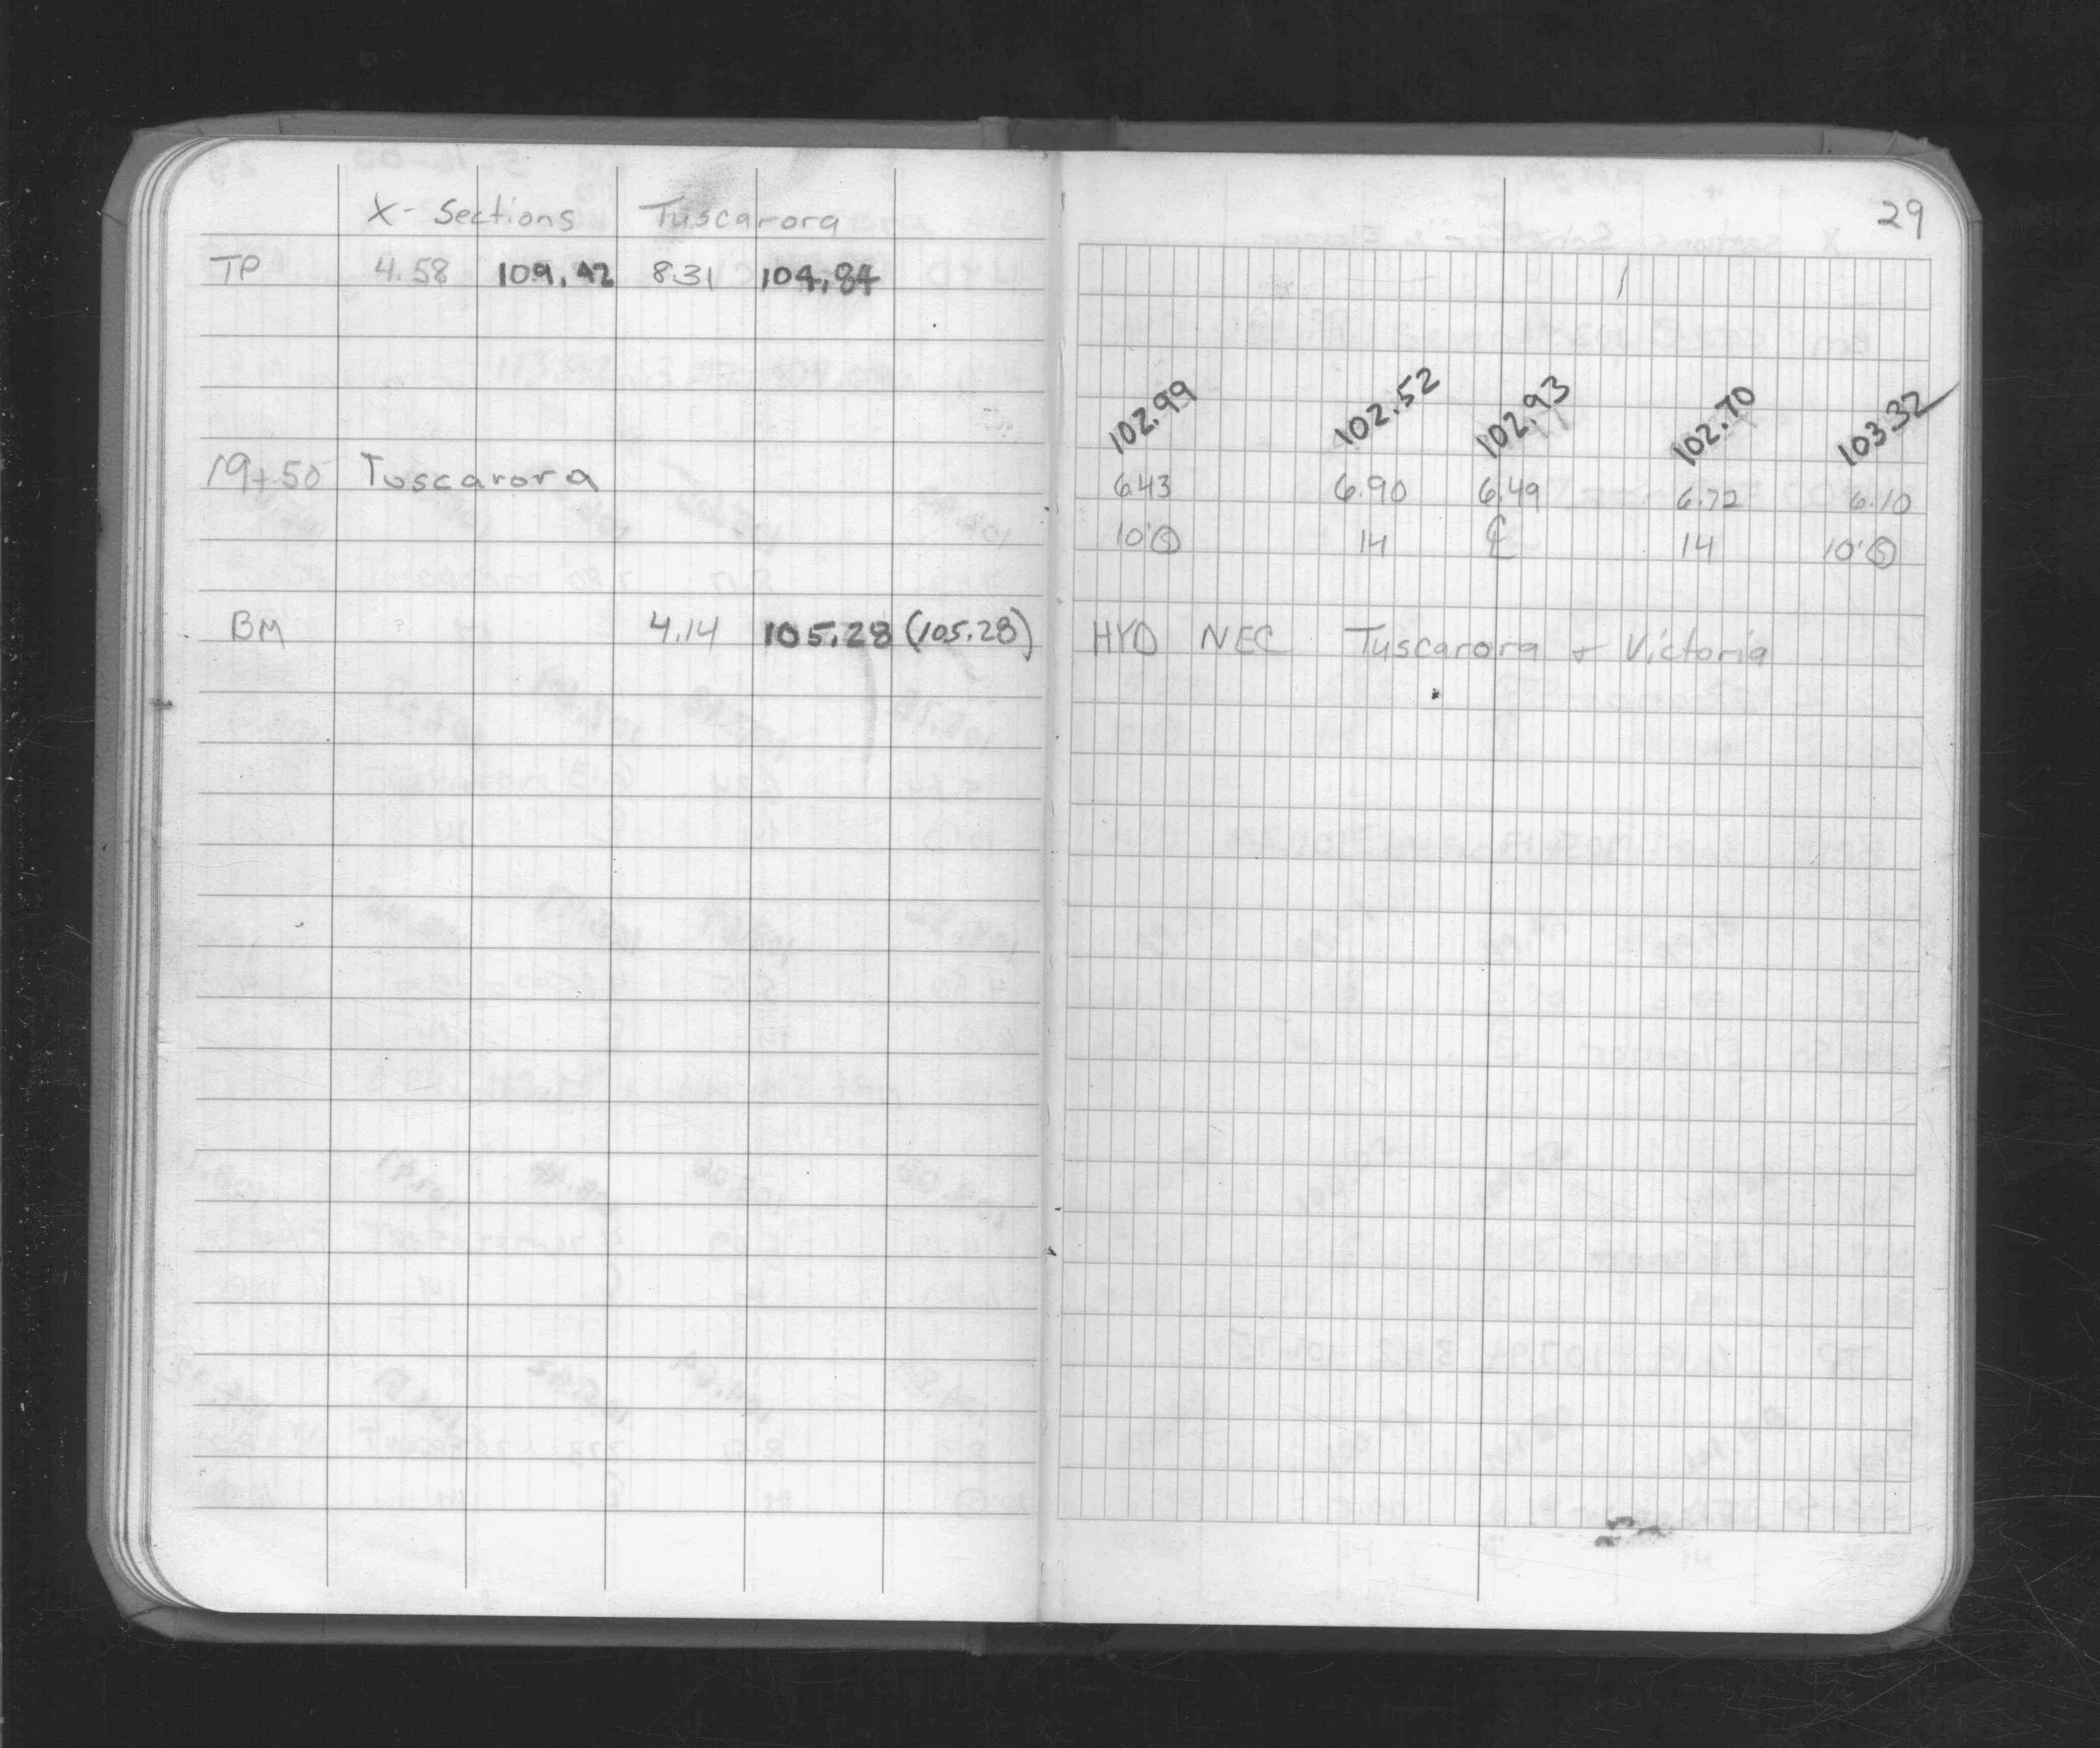 X-Sections Tuscarora
29
TP 4.58 109.42 8.31 104.84
102.99 102.52 102.93 102.70 103.32
19+50 Tuscarora 6.43 6.90 6.49 6.72 6.10
10'Ⓢ 14 ℄ 14 10'Ⓢ
BM 4.14 105.28 (105.28) HYD NEC Tuscarora + Victoria